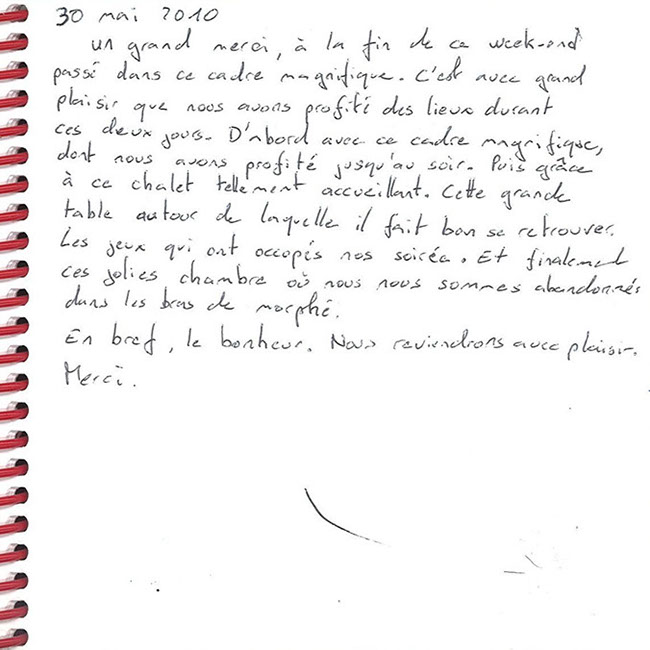 30 mai 2010
un grand merci, à la fin de ce week-end
passé dans ce cadre magnifique. C'est avec grand
plaisir que nous avons profité des lieux durant
ces deux jours. D'abord avec ce cadre magnifique,
dont nous avons profité jusqu'au soir. Puis grâce
à ce chalet tellement accueillant. Cette grande
table autour de laquelle il fait bon se retrouver.
Les jeux qui ont occupés nos soirée. Et finalement
ces jolies chambre où nous nous sommes abandonnés
dans les bras de morphé.
En bref, le bonheur. Nous reviendrons avec plaisir.
Merci.